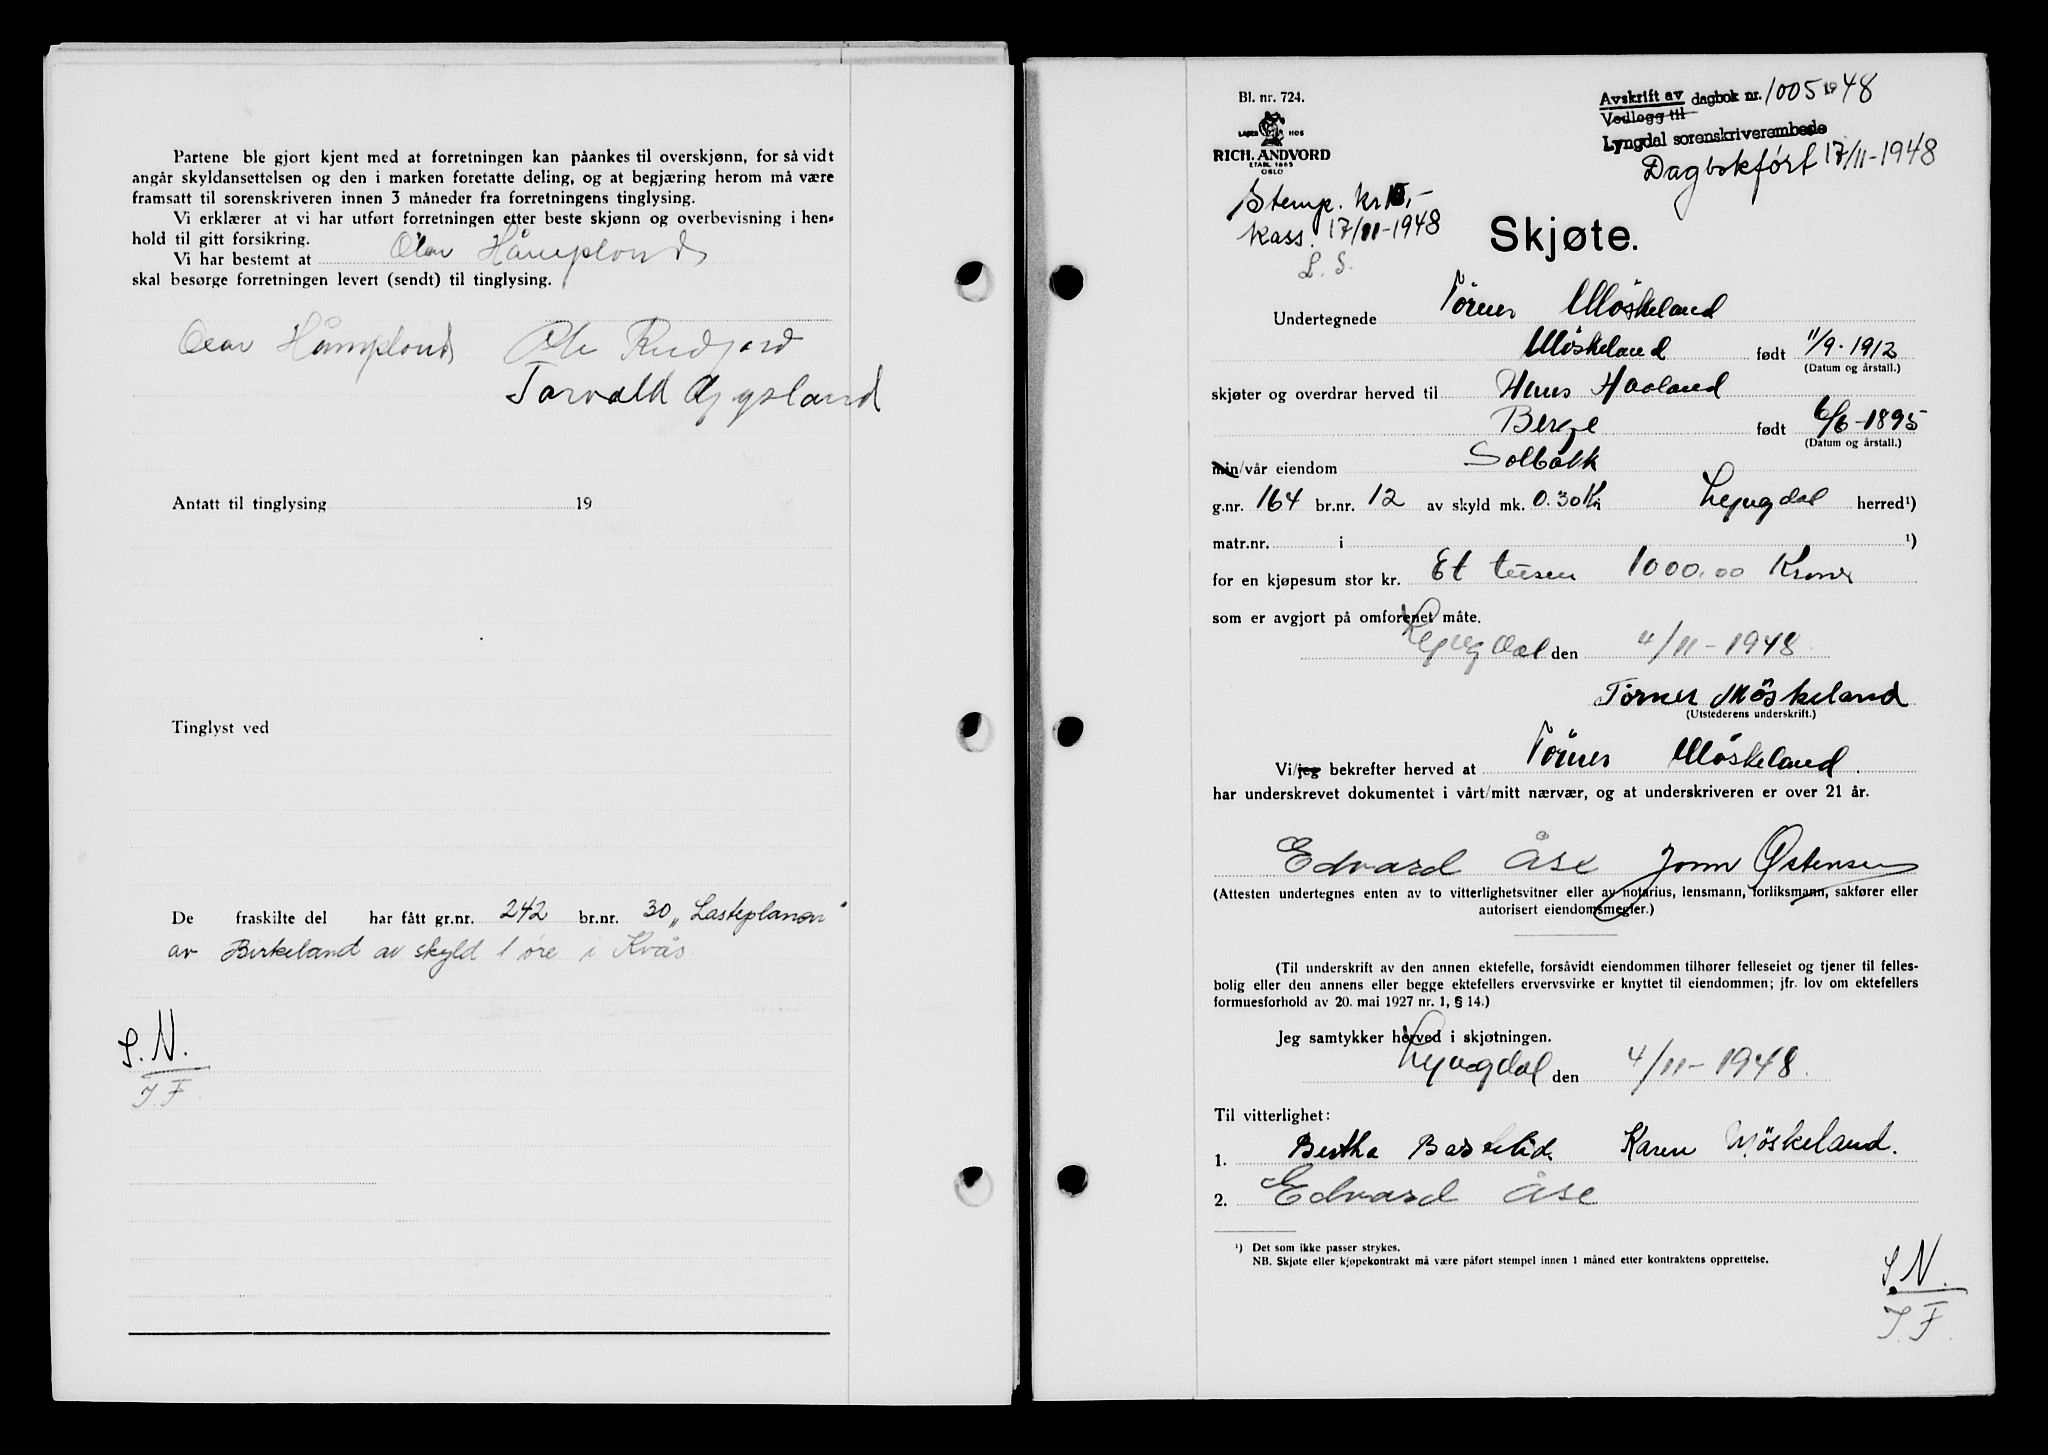 Partene ble gjort kjent med at forretningen kan påankes til overskjønn, for så vidt
angår skyldansettelsen og den i marken foretatte deling, og at begjæring herom må være
framsatt til sorenskriveren innen 3 måneder fra forretningens tinglysing.
Vi erklærer at vi har utført forretningen etter beste skjønn og overbevisning i hen-
hold til gitt forsikring.
Vi har bestemt at Olav Håmplond
skal besørge forretningen levert (sendt) til tinglysing.
Olav Håmplond Ole Rudjord
Torvald Øygsland
Antatt til tinglysing 19
Tinglyst ved
De fraskilte del har fått gr.nr. 242 br.nr. 30 „Lasteplanen"
av Birkeland av skyld 1 øre i Kvås
S. N.
J. F.
Bl. nr. 724.
LAGER HOS
RICH. ANDVORD
ETABL 1865
OSLO
Avskrift av dagbok nr. 1005 1948
Vedlegg til
Lyngdal sorenskriverembede
Dagbokført 17/11-1948
Stemp. kr 15,-
kass. 17/11-1948
L. S.
Skjøte.
Undertegnede Törner Möskeland
Möskeland født 11/9-1912
(Datum og årstall.)
skjøter og overdrar herved til Hans Haaland
Berge født 6/6-1895
(Datum og årstall.)
min/vår eiendom Solbakk
g.nr. 164 br.nr. 12 av skyld mk. 0.30 Kr Lyngdal herred¹)
matr.nr. i ¹)
for en kjøpesum stor kr. Et tusen 1000.00 Kroner
som er avgjort på omforenet måte.
Lyngdal den 4/11-1948.
Törner Möskeland
(Utstederens underskrift.)
Vi/jeg bekrefter herved at Törner Möskeland.
har underskrevet dokumentet i vårt/mitt nærvær, og at underskriveren er over 21 år.
Edvard Åse Jonn Østensen
(Attesten undertegnes enten av to vitterlighetsvitner eller av notarius, lensmann, forliksmann, sakfører eller
autorisert eiendomsmegler.)
(Til underskrift av den annen ektefelle, forsåvidt eiendommen tilhører felleseiet og tjener til felles-
bolig eller den annens eller begge ektefellers ervervsvirke er knyttet til eiendommen; jfr. lov om ektefellers
formuesforhold av 20. mai 1927 nr. 1, § 14.)
Jeg samtykker herved i skjøtningen.
Lyngdal den 4/11-1948.
Til vitterlighet:
1. Bertha Karen Möskeland.
2. Edvard Åse
¹) Det som ikke passer strykes.
NB. Skjøte eller kjøpekontrakt må være påført stempel innen 1 måned etter kontraktens opprettelse.
S. N.
J. F.